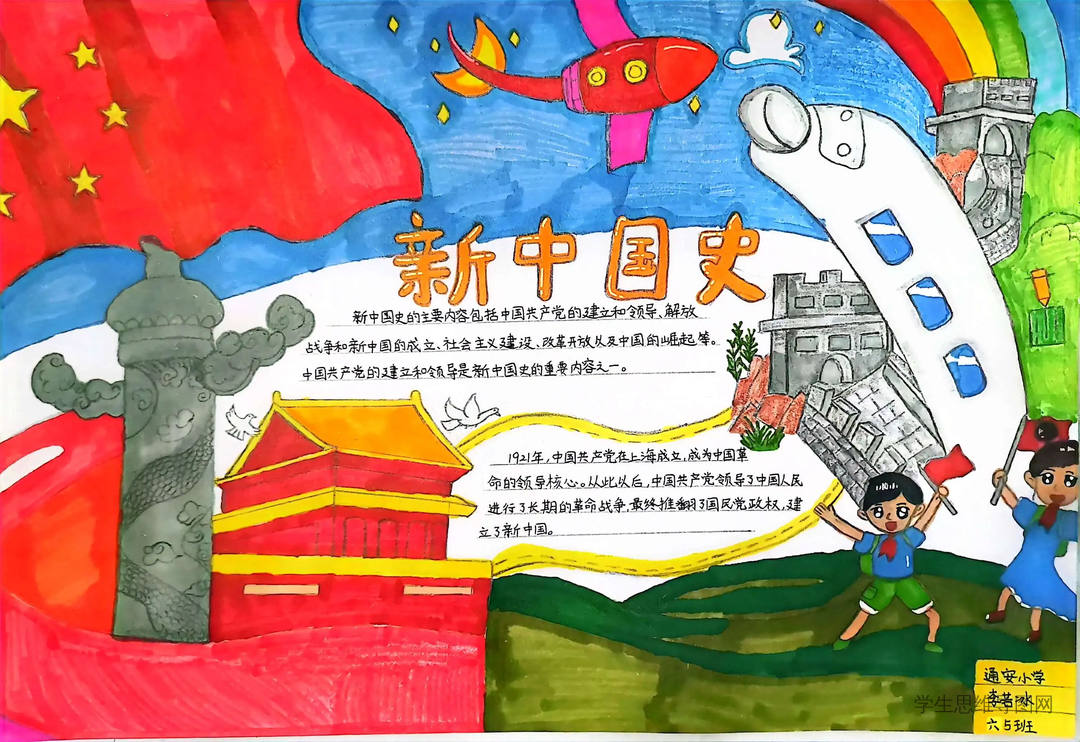 新中国史
新中国史的主要内容包括中国共产党的建立和领导、解放
战争和新中国的成立、社会主义建设、改革开放以及中国的崛起等。
中国共产党的建立和领导是新中国史的重要内容之一。
1921年,中国共产党在上海成立,成为中国革
命的领导核心。从此以后,中国共产党领导了中国人民
进行了长期的革命战争,最终推翻了国民党政权,建
立了新中国。
通安小学
李若冰
六5班
学生思维导图网